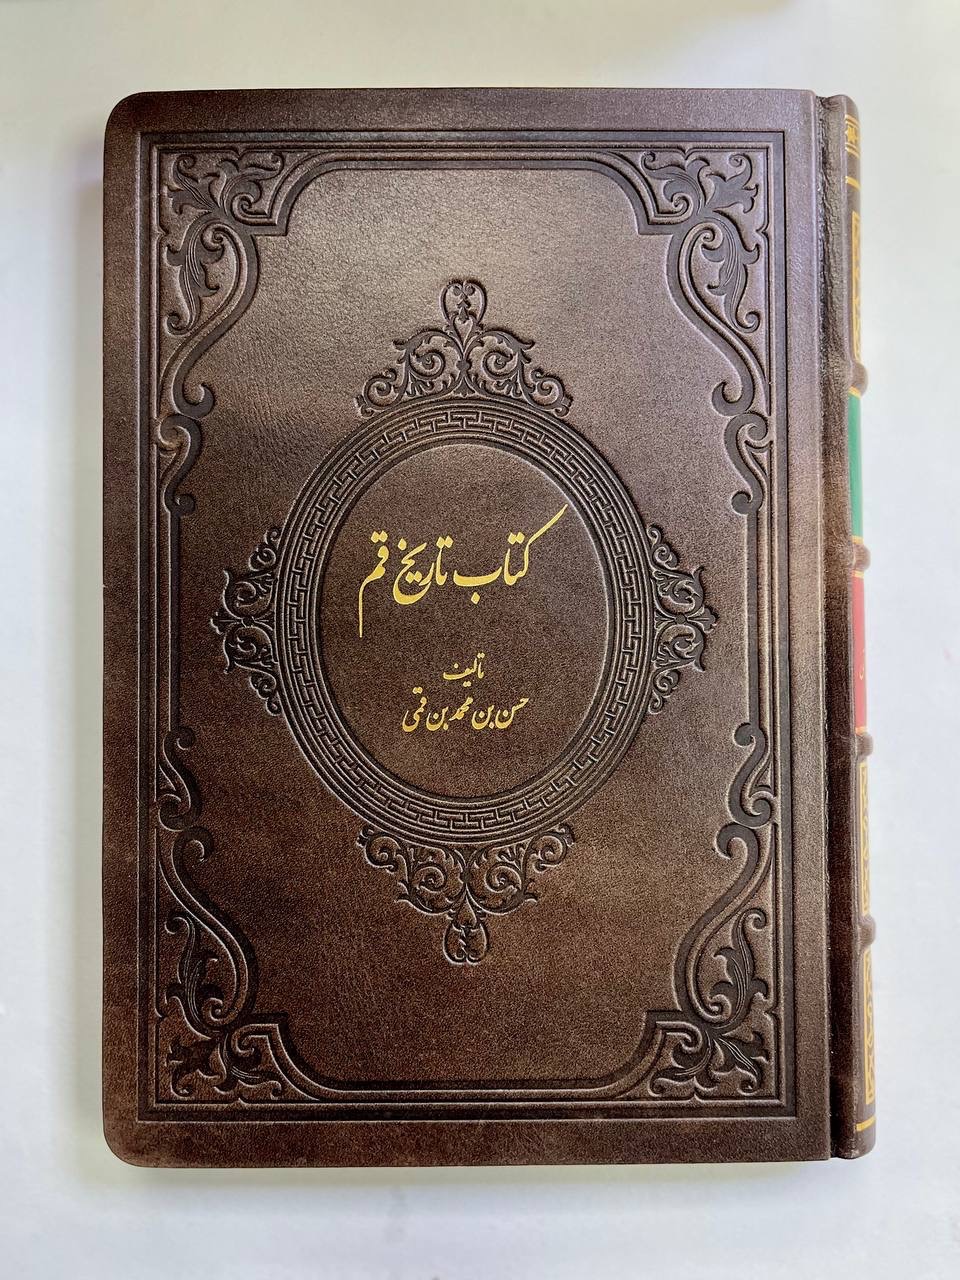 کتاب تاریخ قم
تألیف
حسن بن محمد بن قمی